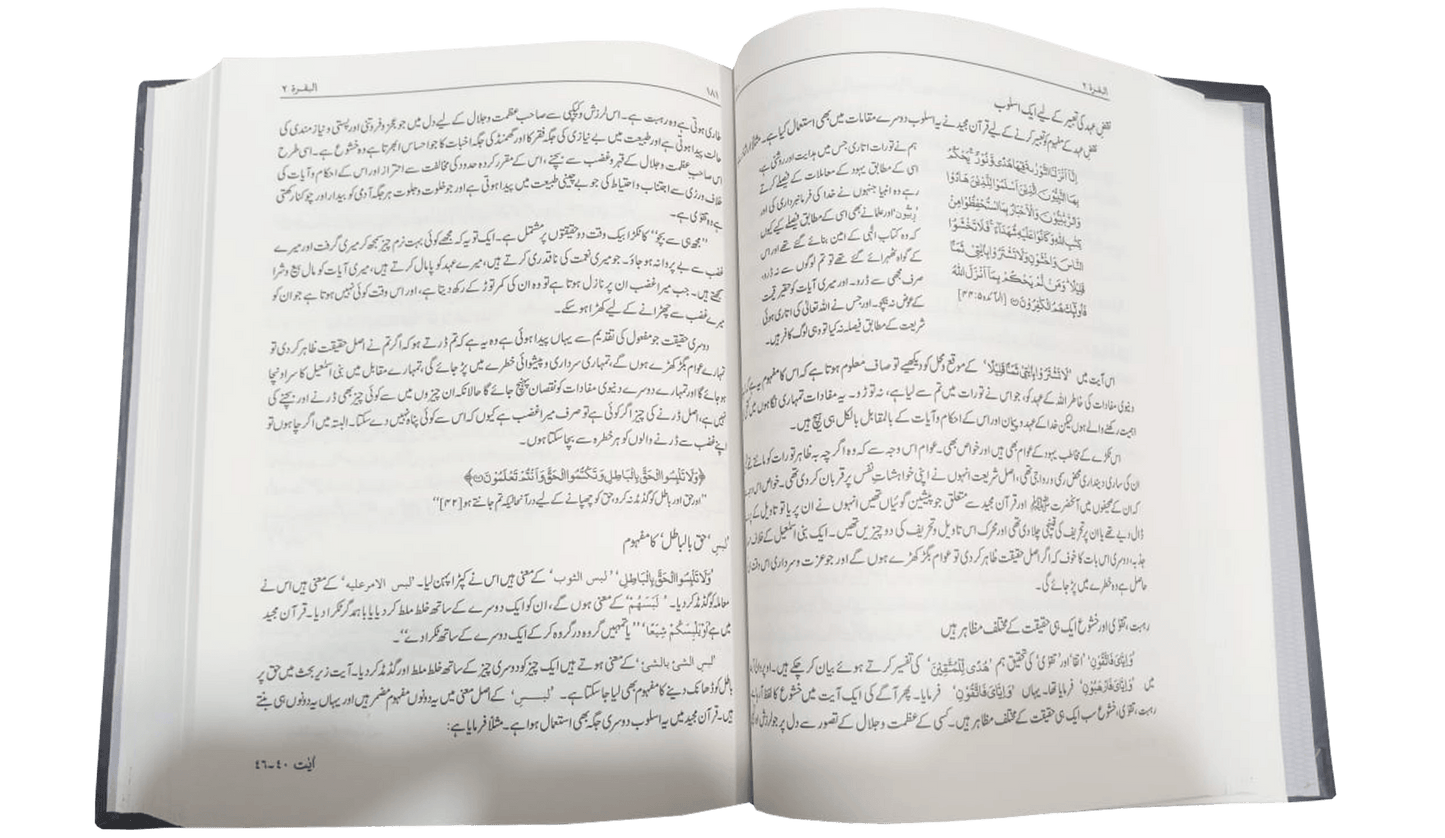 البقرة ۲
نقضِ عہد کی تعبیر کے لیے ایک اسلوب
نقضِ عہد کے مفہوم کو تعبیر کرنے کے لیے قرآن مجید نے یہ اسلوب دوسرے مقامات میں بھی استعمال کیا ہے۔ مثلاً
اِنَّاۤ اَنْزَلْنَا التَّوْرٰىةَ فِيْهَا هُدًى وَّ نُوْرٌ ۚ يَحْكُمُ
بِهَا النَّبِيُّوْنَ الَّذِيْنَ اَسْلَمُوْا لِلَّذِيْنَ هَادُوْا
وَالرَّبّٰنِيُّوْنَ وَالْاَحْبَارُ بِمَا اسْتُحْفِظُوْا مِنْ
كِتٰبِ اللّٰهِ وَكَانُوْا عَلَيْهِ شُهَدَآءَ ۚ فَلَا تَخْشَوُا
النَّاسَ وَاخْشَوْنِ وَلَا تَشْتَرُوْا بِاٰيٰتِيْ ثَمَنًا
قَلِيْلًا ؕ وَمَنْ لَّمْ يَحْكُمْ بِمَاۤ اَنْزَلَ اللّٰهُ
فَاُولٰٓئِكَ هُمُ الْكٰفِرُوْنَ [المائدہ ۵:۴۴]
ہم نے تورات اتاری جس میں ہدایت اور روشنی ہے
اسی کے مطابق یہود کے معاملات کے فیصلے کرتے
رہے وہ انبیا جنہوں نے خدا کی فرمانبرداری کی اور
'ربیّون' اور علما نے بھی اسی کے مطابق فیصلے کیے کیوں
کہ وہ کتاب الٰہی کے امین بنائے گئے تھے اور اس
کے گواہ ٹھہرائے گئے تھے تو تم لوگوں سے نہ ڈرو،
صرف مجھی سے ڈرو۔ اور میری آیات کو حقیر قیمت
کے عوض نہ بیچو۔ اور جس نے اللہ تعالیٰ کی اتاری ہوئی
شریعت کے مطابق فیصلہ نہ کیا تو وہی لوگ کافر ہیں۔
اس آیت میں 'لَا تَشْتَرُوْا بِاٰيٰتِيْ ثَمَنًا قَلِيْلًا' کے موقع محل کو دیکھیے تو صاف معلوم ہوتا ہے کہ اس کا مفہوم یہ ہے کہ
دنیوی مفادات کی خاطر اللہ کے عہد کو، جو اس نے تورات میں تم سے لیا ہے، نہ توڑو۔ یہ مفادات تمہاری نگاہوں میں
اہمیت رکھنے والے ہوں لیکن خدا کے عہد و پیمان اور اس کے احکام و آیات کے بالمقابل بالکل ہی ہیچ ہیں۔
اس ٹکڑے کے مخاطب یہود کے عوام بھی ہیں اور خواص بھی۔ عوام اس وجہ سے کہ وہ اگرچہ بہ ظاہر تورات کو مانتے
ان کی ساری دینداری محض رسمی و رواجی تھی، اصل شریعت انہوں نے اپنی خواہشاتِ نفس پر قربان کر دی تھی۔ خواص اس
کہ ان کے صحیفوں میں آنحضرت ﷺ اور قرآن مجید سے متعلق جو پیشین گوئیاں تھیں انہوں نے ان پر یا تو تاویل کے
ڈال دیے تھے یا ان پر تحریف کی قینچی چلا دی تھی اور محرک اس تاویل و تحریف کی دو چیزیں تھیں۔ ایک بنی اسمٰعیل کے خلاف
جذبہ، دوسری اس بات کا خوف کہ اگر اصل حقیقت ظاہر کر دی تو عوام بگڑ کھڑے ہوں گے اور جو عزت و سرداری اس وقت
حاصل ہے وہ خطرے میں پڑ جائے گی۔
رہبت، تقویٰ اور خشوع ایک ہی حقیقت کے مختلف مظاہر ہیں
'وَاِيَّايَ فَاتَّقُوْنِ' 'اتقا' اور 'تقویٰ' کی تحقیق ہم 'هُدًى لِّلْمُتَّقِيْنَ' کی تفسیر کرتے ہوئے بیان کر چکے ہیں۔ اوپر والی
میں 'وَاِيَّايَ فَارْهَبُوْنِ' فرمایا تھا۔ یہاں 'وَاِيَّايَ فَاتَّقُوْنِ' فرمایا۔ پھر آگے کی ایک آیت میں خشوع کا لفظ
رہبت، تقویٰ، خشوع سب ایک ہی حقیقت کے مختلف مظاہر ہیں۔ کسی کے عظمت و جلال کے تصور سے دل پر جو لرزش
البقرة ۲
۱۸۱
طاری ہوتی ہے وہ رہبت ہے۔ اس لرزش و کپکپی سے صاحبِ عظمت و جلال کے لیے دل میں جو عجز و فروتنی اور پستی و نیازمندی کی
حالت پیدا ہوتی ہے اور طبیعت میں بے نیازی کی جگہ فقر کا اور گھمنڈ کی جگہ اخبات کا جو احساس ابھرتا ہے وہ خشوع ہے۔ اسی طرح
اس صاحبِ عظمت و جلال کے قہر و غضب سے بچنے، اس کے مقرر کردہ حدود کی مخالفت سے احتراز اور اس کے احکام و آیات کی
خلاف ورزی سے اجتناب و احتیاط کی جو بے چینی طبیعت میں پیدا ہوتی ہے اور جو خلوت و جلوت ہر جگہ آدمی کو بیدار اور چوکنا رکھتی
ہے وہ تقویٰ ہے۔
"مجھ ہی سے بچو" کا ٹکڑا بیک وقت دو حقیقتوں پر مشتمل ہے۔ ایک تو یہ کہ مجھے کوئی بہت نرم چیز سمجھ کر میری گرفت اور میرے
غضب سے بے پروا نہ ہو جاؤ۔ جو میری نعمت کی ناقدری کرتے ہیں، میرے عہد کو پامال کرتے ہیں، میری آیات کو مالِ بیع و شرا
سمجھتے ہیں۔ جب میرا غضب ان پر نازل ہوتا ہے تو وہ ان کی کمر توڑ کے رکھ دیتا ہے، اور اس وقت کوئی نہیں ہوتا ہے جو ان کو
میرے غضب سے چھڑانے کے لیے کھڑا ہو سکے۔
دوسری حقیقت جو مفعول کی تقدیم سے یہاں پیدا ہوئی ہے وہ یہ ہے کہ تم ڈرتے ہو کہ اگر تم نے اصل حقیقت ظاہر کر دی تو
تمہارے عوام بگڑ کھڑے ہوں گے، تمہاری سرداری و پیشوائی خطرے میں پڑ جائے گی، تمہارے مقابل میں بنی اسمٰعیل کا سر اونچا
ہو جائے گا اور تمہارے دوسرے دنیوی مفادات کو نقصان پہنچ جائے گا حالانکہ ان چیزوں میں سے کوئی چیز بھی ڈرنے اور بچنے کی
نہیں ہے، اصل ڈرنے کی چیز اگر کوئی ہے تو صرف میرا غضب ہے کیوں کہ اس سے کوئی پناہ نہیں دے سکتا۔ البتہ میں اگر چاہوں تو
اپنے غضب سے ڈرنے والوں کو ہر خطرہ سے بچا سکتا ہوں۔
﴿وَلَا تَلْبِسُوا الْحَقَّ بِالْبَاطِلِ وَتَكْتُمُوا الْحَقَّ وَاَنْتُمْ تَعْلَمُوْنَ﴾
"اور حق اور باطل کو گڈمڈ نہ کرو، حق کو چھپانے کے لیے درآنحالیکہ تم جانتے ہو [۴۲]"
'لبسِ' حق بالباطل' کا مفہوم
'وَلَا تَلْبِسُوا الْحَقَّ بِالْبَاطِلِ' 'لبس الثوب' کے معنی ہیں اس نے کپڑا پہن لیا۔ 'لبس الامر علیہ' کے معنی ہیں اس نے
معاملہ کو گڈمڈ کر دیا۔ 'لَبَسَهُمْ' کے معنی ہوں گے، ان کو ایک دوسرے کے ساتھ خلط ملط کر دیا یا باہمدگر ٹکرا دیا۔ قرآن مجید
میں ہے 'اَوْ يَلْبِسَكُمْ شِيَعًا' "یا تمہیں گروہ در گروہ کر کے ایک دوسرے کے ساتھ ٹکرا دے"۔
'لبس الشیٔ بالشیٔ' کے معنی ہوتے ہیں ایک چیز کو دوسری چیز کے ساتھ خلط ملط اور گڈمڈ کر دیا۔ آیت زیرِ بحث میں حق پر
باطل کو ڈھانک دینے کا مفہوم بھی لیا جا سکتا ہے۔ 'لبس' کے اصل معنی میں یہ دونوں مفہوم مضمر ہیں اور یہاں یہ دونوں ہی بنتے
ہیں۔ قرآن مجید میں یہ اسلوب دوسری جگہ بھی استعمال ہوا ہے۔ مثلاً فرمایا ہے:
آیت ۴۰-۴۶